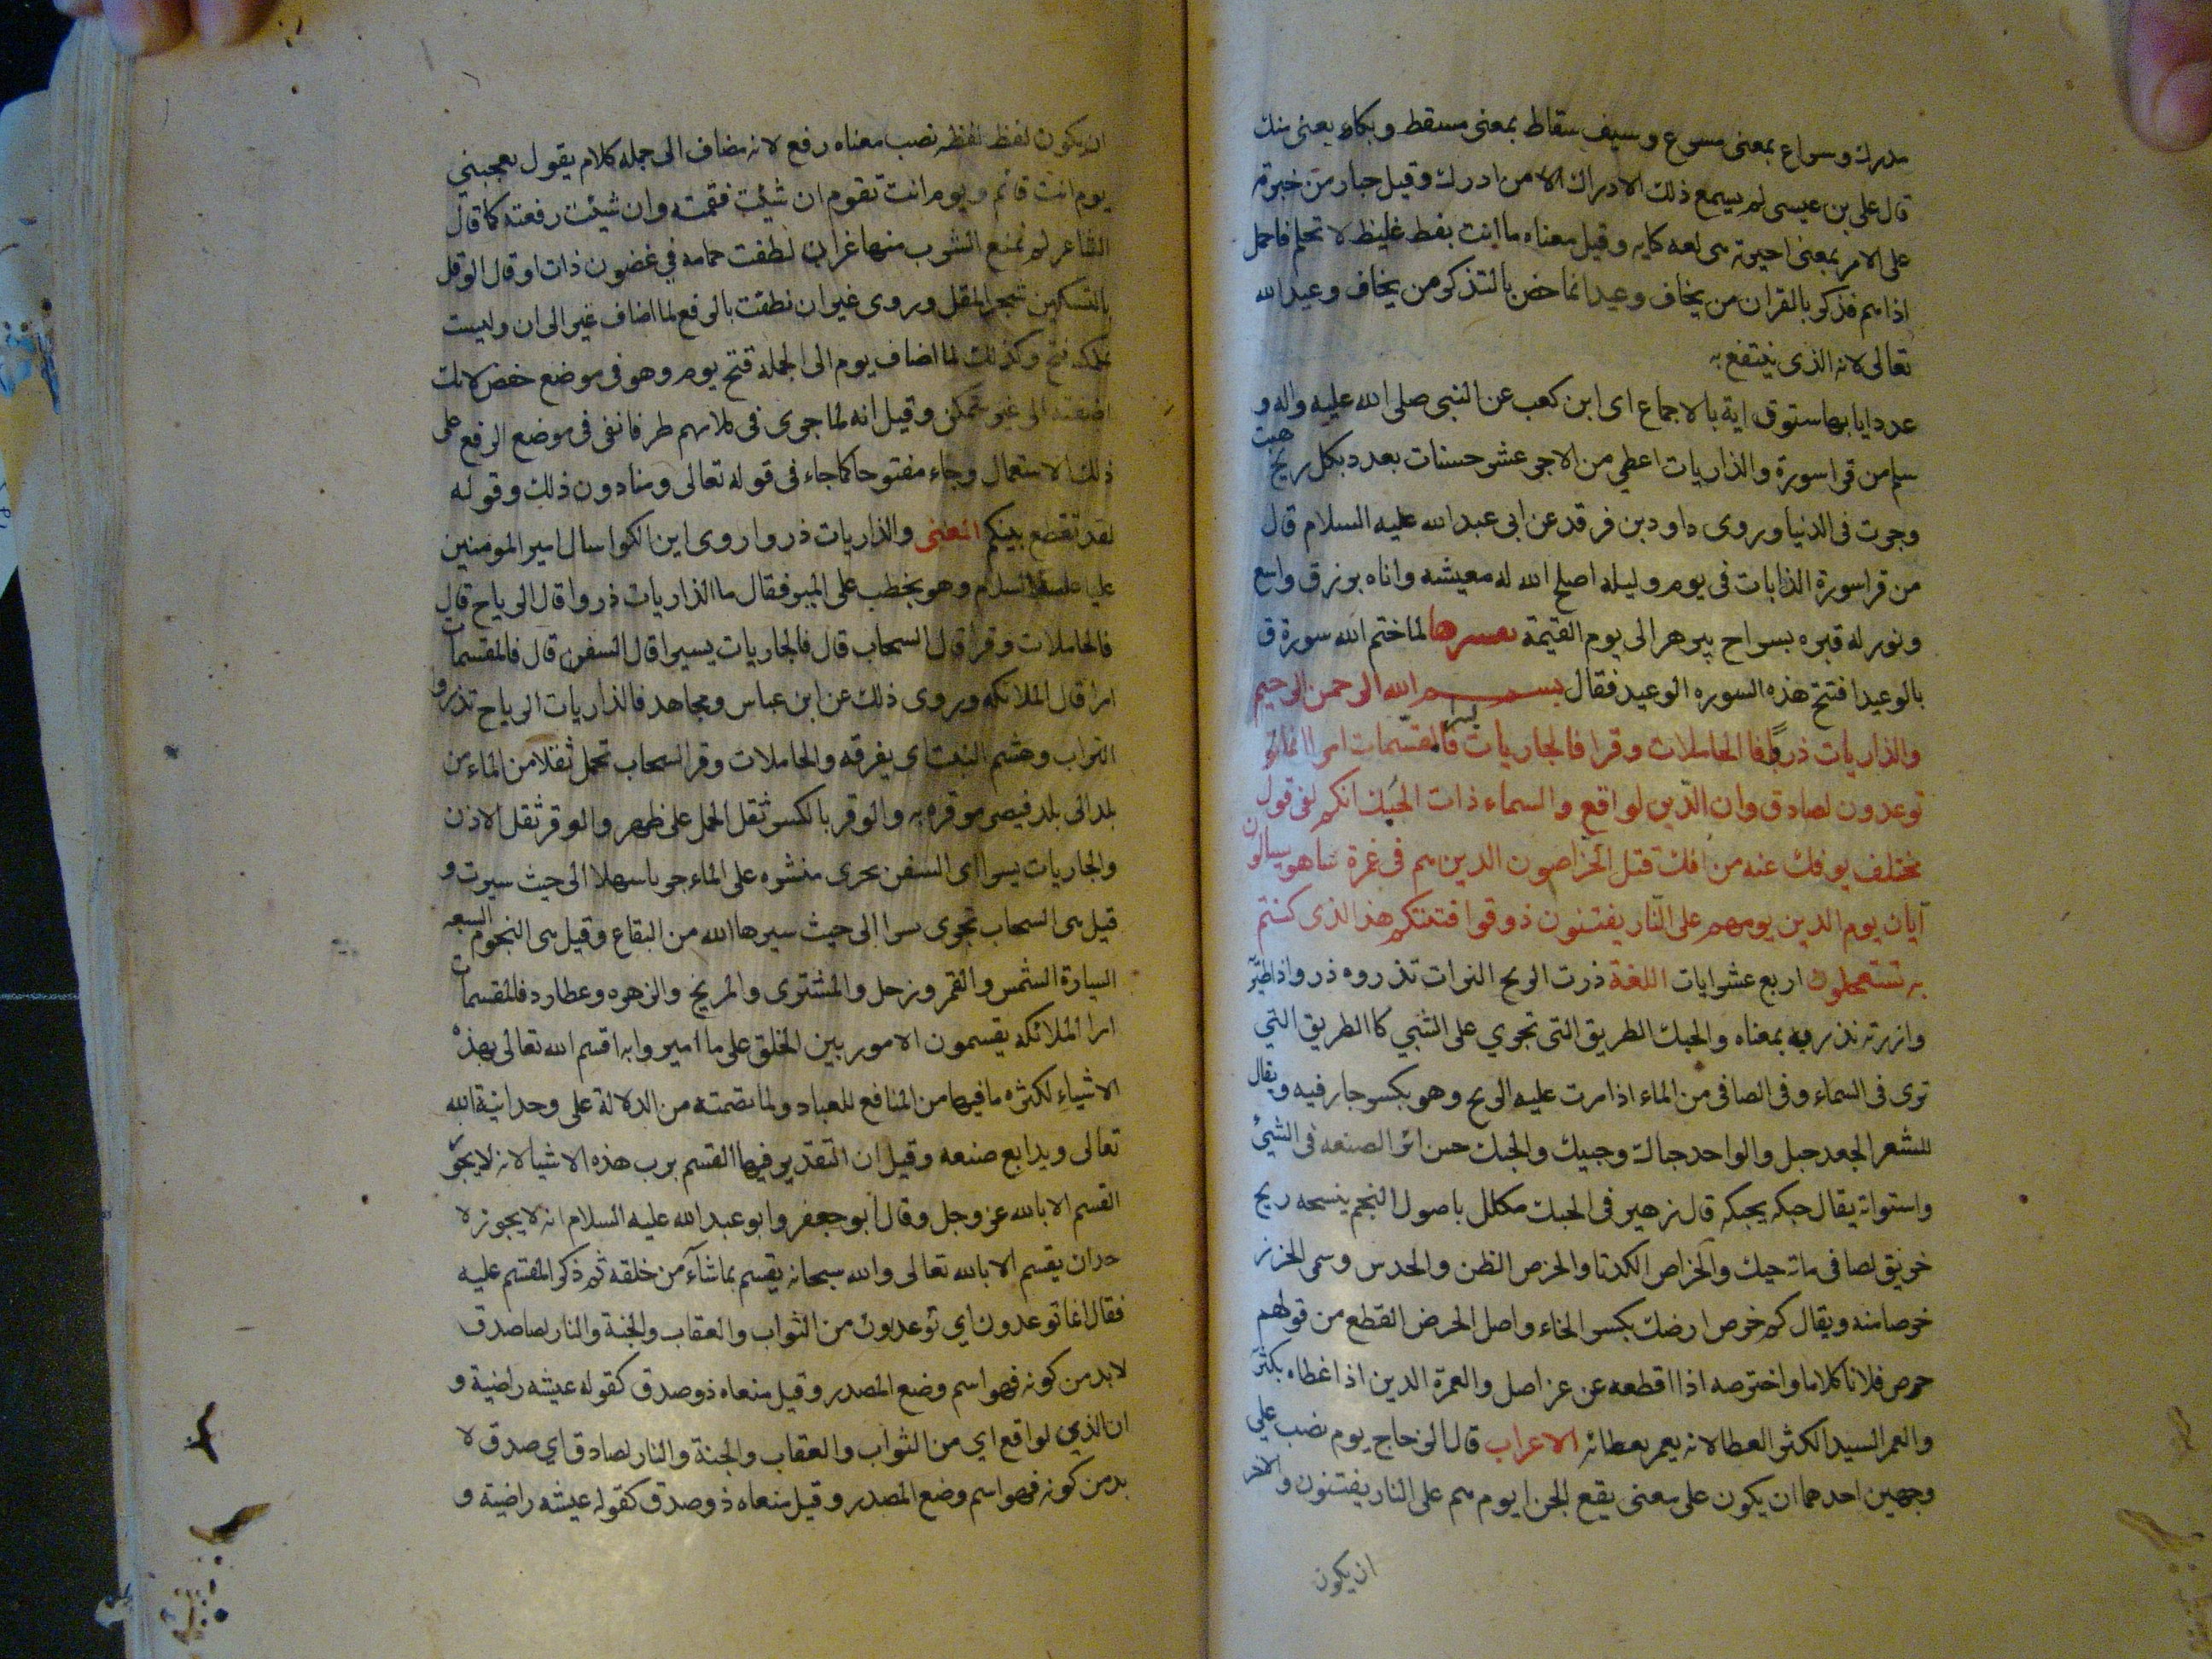 مدرك وسراع بمعنى مسرع وسيف سقاط بمعنى مسقط وبكاء بمعنى منك
قال على بن عيسى لم يسمع ذلك الادراك الا من ادرك وقيل جبار من خبرته
على الامر بمعنى اجبرته وقيل معناه ما انت بفظ غليظ لا تحلم فاحمل
اذاهم فذكر بالقران من يخاف وعيد انما خص بالتذكر من يخاف وعيد الله
تعالى لانه الذى ينتفع به
عدد ايايها ستون اية بالاجماع اى ابن كعب عن النبى صلى الله عليه واله و
سلم من قرا سورة والذاريات اعطى من الاجر عشر حسنات بعدد بكل ريح هبت
وجرت فى الدنيا وروى داود بن فرقد عن ابى عبد الله عليه السلام قال
من قرا سورة الذايات فى يوم وليله اصلح الله له معيشه واتاه برزق واسع
ونور له قبره بسراج يزهر الى يوم القيمة تفسيرها لما ختم الله سورة ق
بالوعيد افتتح هذه السوره الوعيد فقال بسم الله الرحمن الرحيم
والذاريات ذروا فا الحاملات وقرا فالجاريات يسرا فالمقسمات امرا انما
توعدون لصادق وان الدين لواقع والسماء ذات الحبك انكم لفى قول
مختلف يوفك عنه من افك قتل الخراصون الدين هم فى غمرة ساهو يسالون
ايان يوم الدين يومهم على النار يفتنون ذوقوا فتنتكم هذا الذى كنتم
به تستعجلون اربع عشر ايات اللغة ذرت الريح التراب تذروه ذروا اذا طيرت
واذرته تذريه بمعناه والحبك الطريق التى تجري على الشيي كا الطريق التي
ترى فى السماء وفى الصافى من الماء اذا مرت عليه الريح وهو بكسر جار فيه ويقال
للشعر الجعد حبل والواحد حباك وحبيك والحبك حسن اثر الصنعه فى الشئ
واستوائه يقال حبكه يحبكه قال زهير فى الحبك مكلل باصول النجم ينسجه ريح
خريق لصافى مائه حبك والخراص الكذاب والخرص الظن والحدس وسمى الخرز
خرصا منه ويقال كم خرص ارضك بكسر الخاء واصل الخرص القطع من قولهم
خرص فلانا كلاما واخترصه اذا اقطعه عن غير اصل والغمرة الدين اذا غطاه بكثرة
والغمر السيد الكثير العطا لانه يغمر بعطائه الاعراب قال الزجاج يوم نصب على
وجهين احدهما ان يكون على معنى يقع الجزا يوم هم على النار يفتنون والاخر
ان يكون
ان يكون لفظ لفظه نصب معناه رفع لانه مضاف الى جمله كلام يقول يعجبنى
يوم انت قائم ويوم انت تقوم ان شئت فقمته وان شئت رفعته كما قال
الشاعر لم يمنع الشرب منها غير ان نطقت حمامه في غضون ذات اوقال الوقل
بالتسكين شجر المقل وروى غير ان نطقت بالرفع لما اضاف غير الى ان وليست
بملكه فتح وكذلك لما اضاف يوم الى الجمله فتح يوم وهو فى موضع خفض لانك
اضفته الى غير متمكن وقيل انه لما جرى فى كلامهم ظرفا نفى فى موضع الرفع على
ذلك الاستعمال وجاء مفتوحا كما جاء فى قوله تعالى ومنا دون ذلك وقوله
لقد تقطع بينكم المعنى والذاريات ذروا روى ابن الكوا سال امير المومنين
علي عليه السلام وهو يخطب على المنبر فقال ما الذاريات ذروا قال الرياح قال
فالحاملات وقرا قال السحاب قال فالجاريات يسيرا قال السفن قال فالمقسمات
امرا قال الملائكه وروى ذلك عن ابن عباس ومجاهد فالذاريات الرياح تذروا
التراب وهشم النبت اى يفرقه والحاملات وقرا السحاب تحمل ثقلا من الماء من
بلد الى بلد فيصير موقره به والوقر بالكسر ثقل الحمل على ظهر والوقر ثقل الاذن
والجاريات يسرا اى السفن بحرى منشوه على الماء جريا سهلا الى حيث سيرت و
قيل هى السحاب تجرى يسرا الى حيث سيرها الله من البقاع وقيل هى النجوم السبعه
السيارة الشمس والقمر وزحل والمشترى والمريخ والزهره وعطارد فالمقسمات
امرا الملائكه يقسمون الامور بين الخلق على ما امروا به اقسم الله تعالى بهذه
الاشياء لكثره ما فيها من المنافع للعباد ولما تضمته من الدلالة على وحدانية الله
تعالى وبدايع صنعه وقيل ان التقدير فيها القسم برب هذه الاشيا لانه لا يجوز
القسم الا بالله عز وجل وقال ابو جعفر وابو عبد الله عليه السلام انه لا يجوز لا
حد ان يقسم الا بالله تعالى والله سبحانه يقسم بما شآء من خلقه ثم ذكر المقسم عليه
فقال انما توعدون اي توعدون من الثواب والعقاب والجنة والنار لصاصدق
لابد من كونه فهو اسم وضع المصدر وقيل منعاه ذو صدق كقوله عيشه راضية و
ان الذي لواقع اي من الثواب والعقاب والجنة والنار لصادق اي صدق لا
بد من كونه فهو اسم وضع المصدر وقيل منعاه ذو صدق كقوله عيشه راضية و